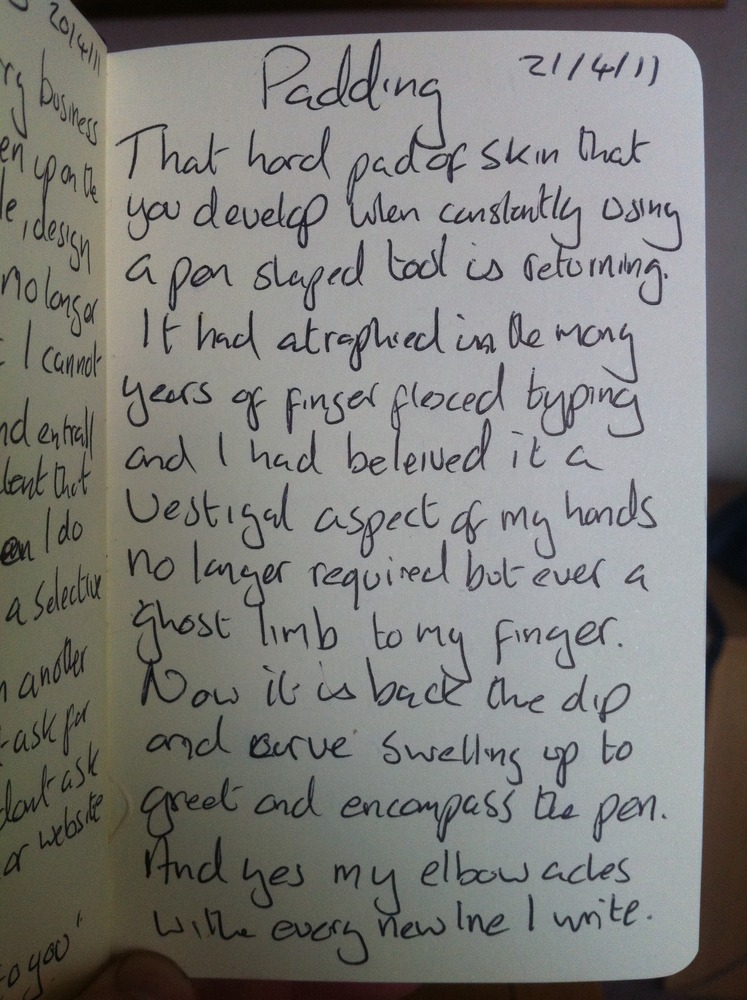 20/4/11
ry business
en upon the
le, design
no longer
I cannot
nd entrall
lent that
en I do
a selective
n another
ask for
dont ask
or website
to you"
Padding 21/4/11
That hard pad of skin that
you develop when constantly using
a pen shaped tool is returning.
It had atrophied in the many
years of finger flexed typing
and I had beleived it a
vestigal aspect of my hands
no longer required but ever a
ghost limb to my finger.
Now it is back the dip
and curve swelling up to
greet and encompass the pen.
And yes my elbow aches
with every new line I write.